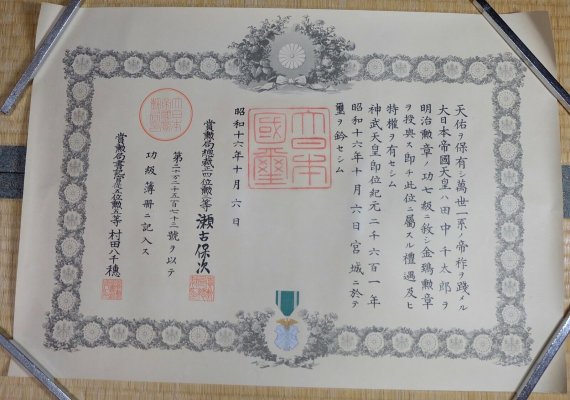 天佑ヲ保有シ萬世一系ノ帝祚ヲ踐メル
大日本帝國天皇ハ田中千太郎ヲ
明治勲章ノ功七級ニ敍シ金鵄勲章
ヲ授與ス即チ此位ニ屬スル禮遇及ヒ
特權ヲ有セシム
神武天皇即位紀元二千六百一年
昭和十六年十月六日宮城ニ於テ
璽ヲ鈐セシム
大日本
國璽
昭和十六年十月六日
賞勲局總裁 瀬古保次
ヲ以テ
功級簿冊ニ記入ス
賞勲局書記官 村田八千穂